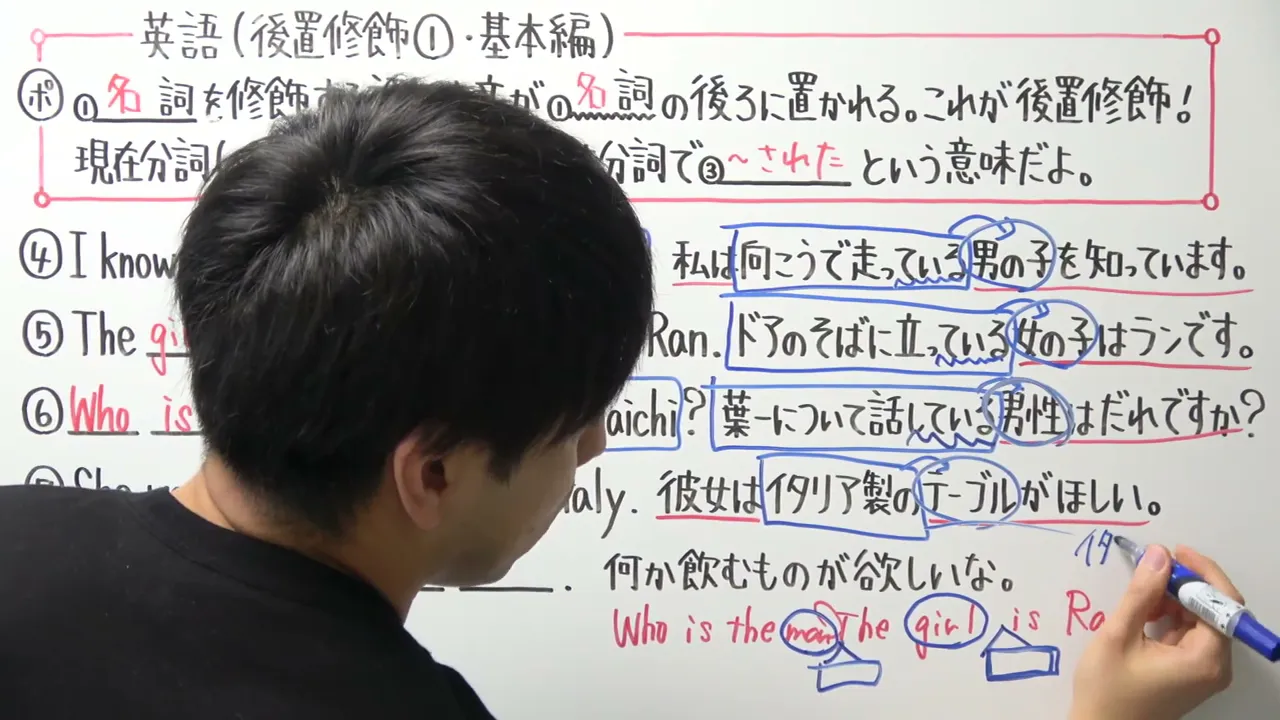 英語(後置修飾①・基本編)
ポ ①名詞を修飾す が①名詞の後ろに置かれる。これが後置修飾!
現在分詞( 分詞で③~されたという意味だよ。
④I know 私は向こうで走っている男の子を知っています。
⑤The Ran. ドアのそばに立っている女の子はランです。
⑥Who is aichi? 葉一について話している男性はだれですか?
She 彼女はイタリア製のテーブルがほしい。
イタ
. 何か飲むものが欲しいな。
Who is the man The girl is Ra